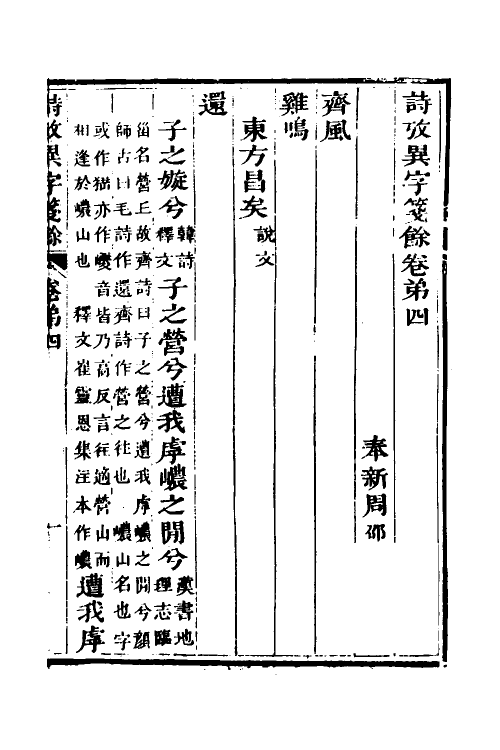 詩攷異字箋餘卷弟四
奉新周邵
齊風
雞鳴
東方昌矣說文
還
子之嫙兮韓詩釋文子之營兮遭我虖巙之閒兮漢書地理志臨
甾名營丘故齊詩曰子之營兮遭我虖巙之閒兮顏
師古曰毛詩作還齊詩作營之往也巙山名也字
或作猱亦作巎音皆乃高反言往適營山而
相逢於巙山也 釋文崔靈恩集注本作巙遭我虖
詩攷異字箋餘 卷弟四 一